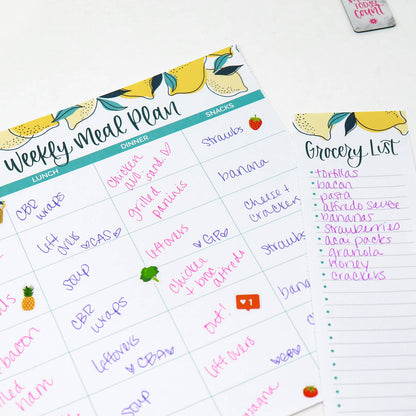 COUNT
Weekly Meal Plan
LUNCH
DINNER
SNACKS
CBR
wraps
chicken
avo sand.
strawbs
left
overs
grilled
paninis
banana
soup
leftovers
cheese +
crackers
CBR
wraps
chicken
+ broc
alfredo
strawbs
bacon
leftovers
out!
banan
grilled
ham
soup
left overs
Grocery List
tortillas
bacon
pasta
alfredo sauce
bananas
strawberries
acai packs
granola
honey
crackers